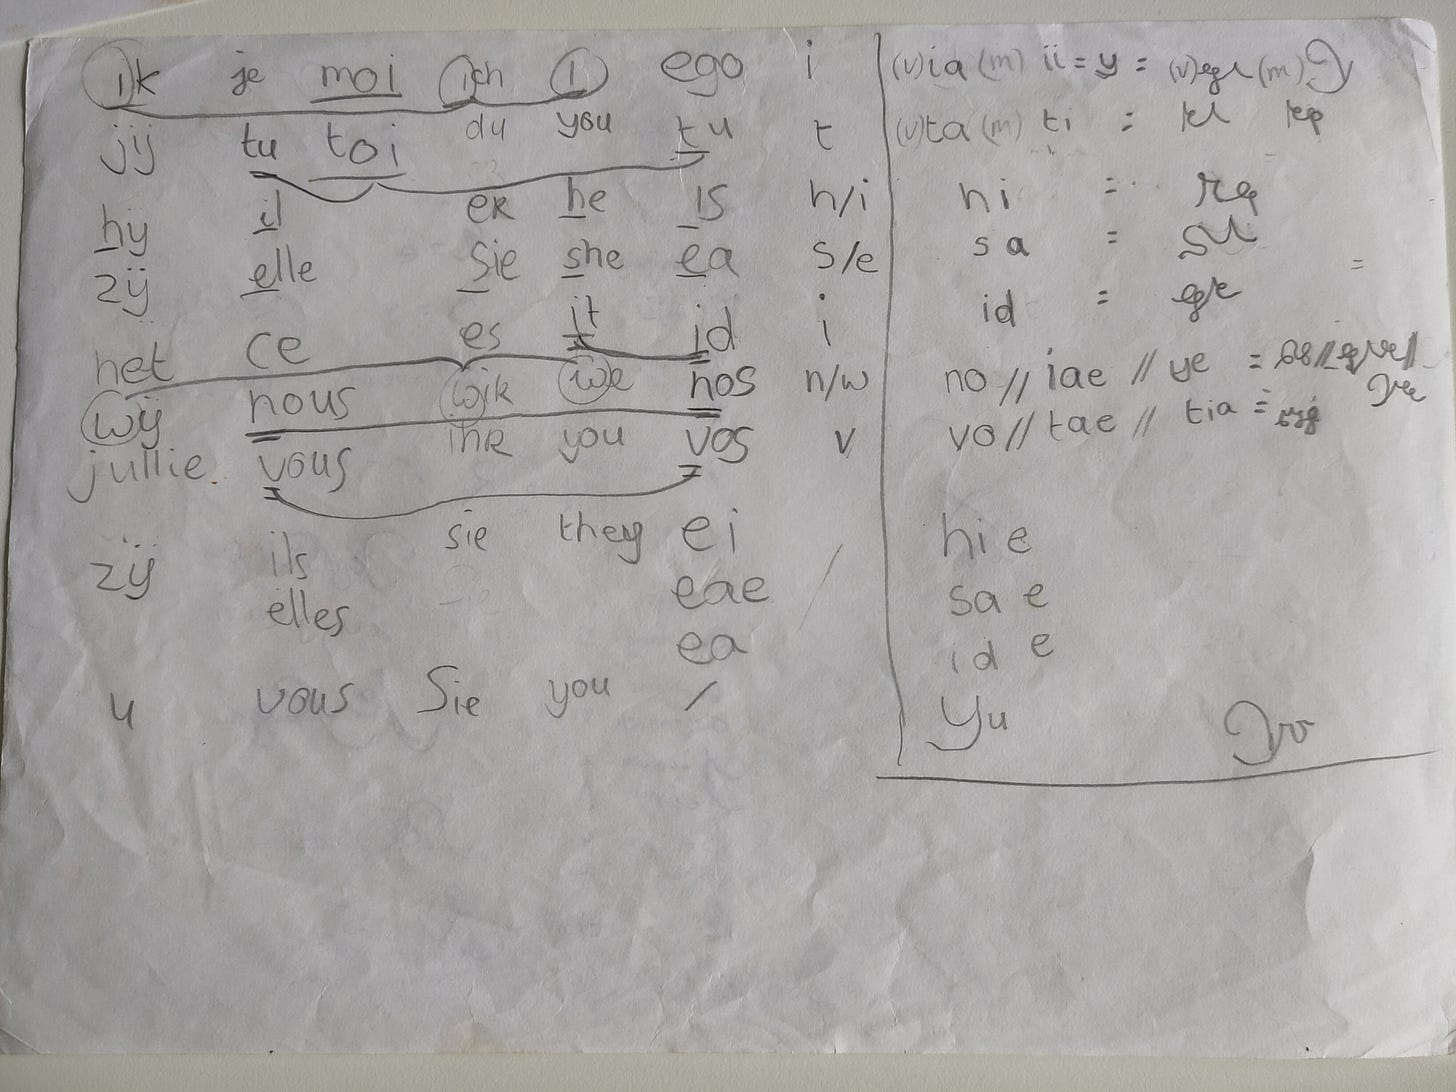 ik je moi ich I ego i (v)ia (m) ii = y = (v) (m)
jij tu toi du you tu t (v)ta (m) ti =
hij il er he is h/i hi =
zij elle Sie she ea s/e sa =
het ce es it id i id =
wij nous wir we nos n/w no // iae // ye =
jullie vous ihr you vos v vo // tae // tia =
zij ils sie they ei hie
elles eae / sae
ea ide
u vous Sie you / Yu